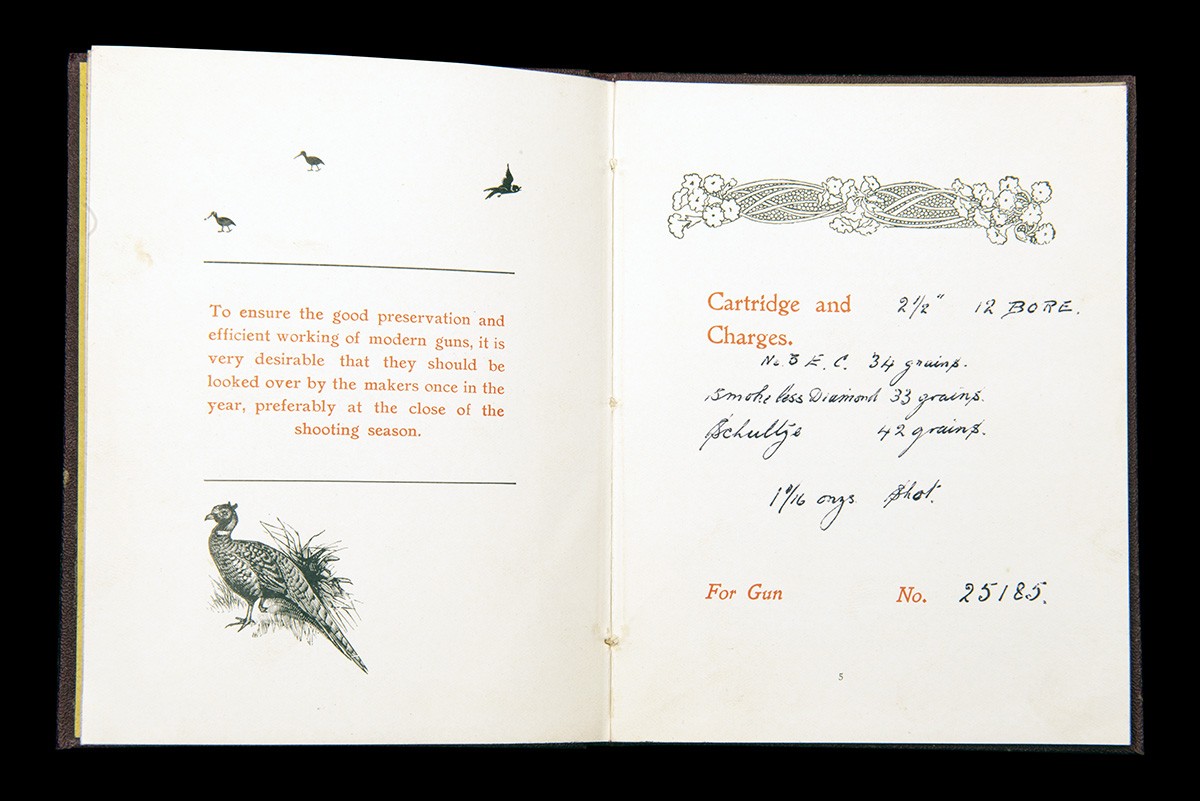 To ensure the good preservation and
efficient working of modern guns, it is
very desirable that they should be
looked over by the makers once in the
year, preferably at the close of the
shooting season.
Cartridge and 2½" 12 BORE.
Charges.
No. 3 E. C. 34 grains.
Smokeless Diamond 33 grains.
Schultze 42 grains.
1 1/16 onzs Shot.
For Gun No. 25185.
5